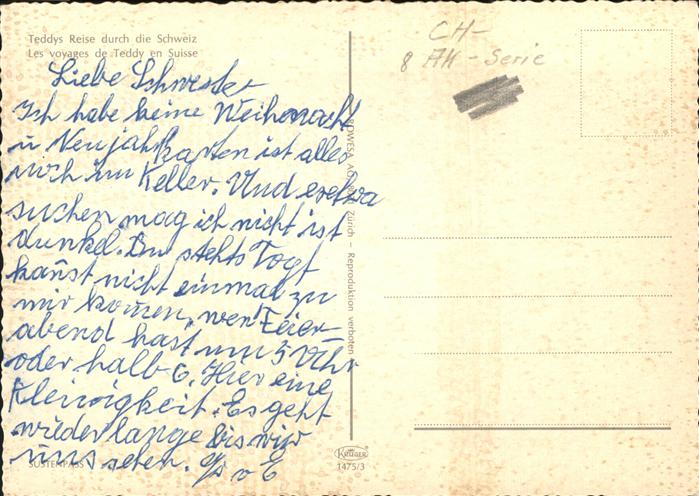 Teddys Reise durch die Schweiz
Les voyages de Teddy en Suisse
Liebe Schwester
Ich habe keine Weihenacht
u Neujahrkarten ist alles
noch im Keller. Und extra
suchen mag ich nicht ist
dunkel. Du
kan̄st nicht einmal zu
mir kom̄en, wen Feier-
abend hast um 5 Uhr
oder halb 6. Hier eine
Kleinigkeit. Es geht
wieder lange bis wir
uns sehen. v E
SUSTENPASS
ROWESA AG, Zürich – Reproduktion verboten
KRÜGER
1475/3
CH-
8 AK-Serie